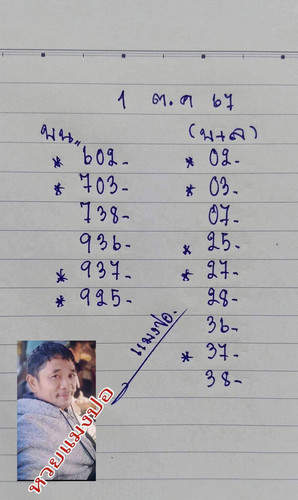 1 ต.ค 67
บน,, (บ+ล)
* 602- * 02-
* 703- * 03-
738- 07-
936- * 25-
* 937- * 27-
* 925- 28-
36-
* 37-
38-
แมงปอ.
หวยแมงปอ